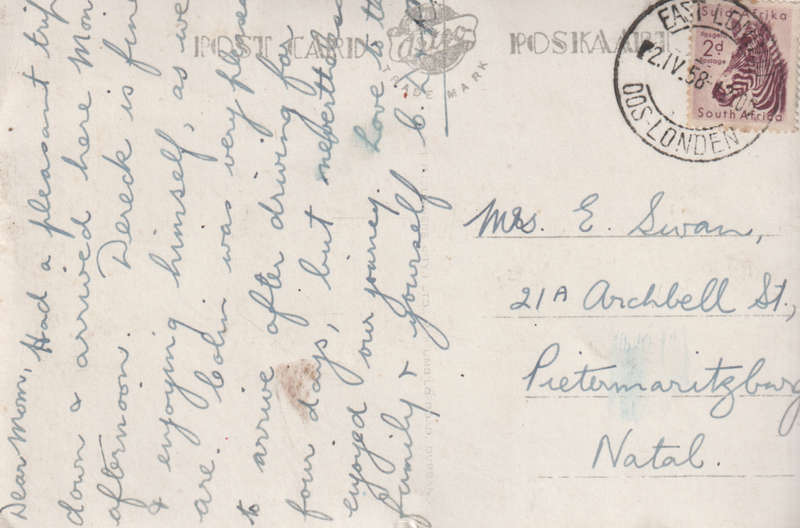 POST CARD
POSKAART
TRADE MARK
EAST LON
2.IV.58
OOS-LONDEN
Suid Afrika
Posgeld
2d
Postage
South Africa
Dear Mom, Had a pleasant trip
down & arrived here Mon
afternoon. Dereck is fine
& enjoying himself, as we
are. Colin was very pleas
to arrive after driving for
four days, but nevertheless
enjoyed our journey. Love to the
family & yourself
Mrs. E. Swan,
21A Archbell St.,
Pietermaritzburg
Natal.